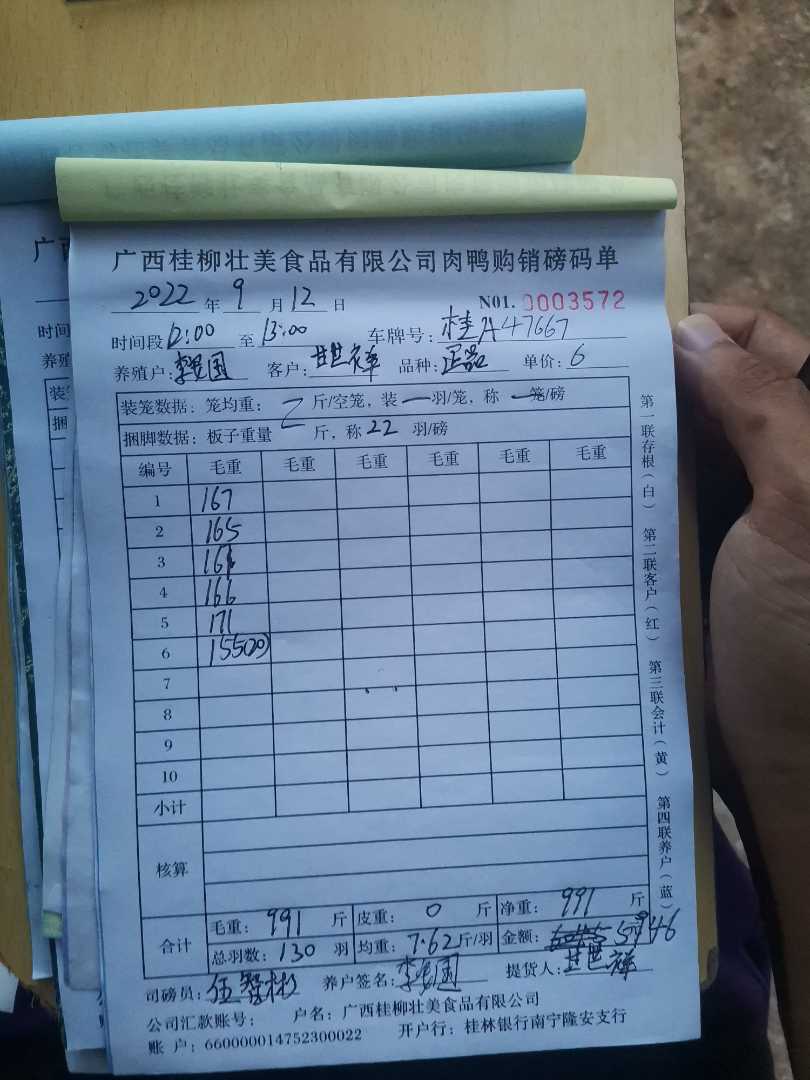 广西桂柳壮美食品有限公司肉鸭购销磅码单
2022年9月12日 N01. 0003572
时间段12:00至13:00 车牌号:桂A47667
养殖户: 国 客户:甘世祥 品种:正品 单价:6
装笼数据:笼均重: 斤/空笼,装一羽/笼,称一笼/磅
捆脚数据:板子重量 斤,称22羽/磅
编号 毛重 毛重 毛重 毛重 毛重 毛重
1 167
2 165
3
4 166
5 171
6 155(20)
7
8
9
10
小计
核算
合计 毛重:991斤 皮重:0斤 净重:991斤
总羽数:130羽 均重:7.62斤/羽 金额:5946
司磅员:伍智彬 养户签名: 国 提货人:甘世祥
公司汇款账号: 户名:广西桂柳壮美食品有限公司
账户:660000014752300022 开户行:桂林银行南宁隆安支行
第一联存根(白) 第二联客户(红) 第三联会计(黄) 第四联养户(蓝)
广
时间
养殖
装
捆